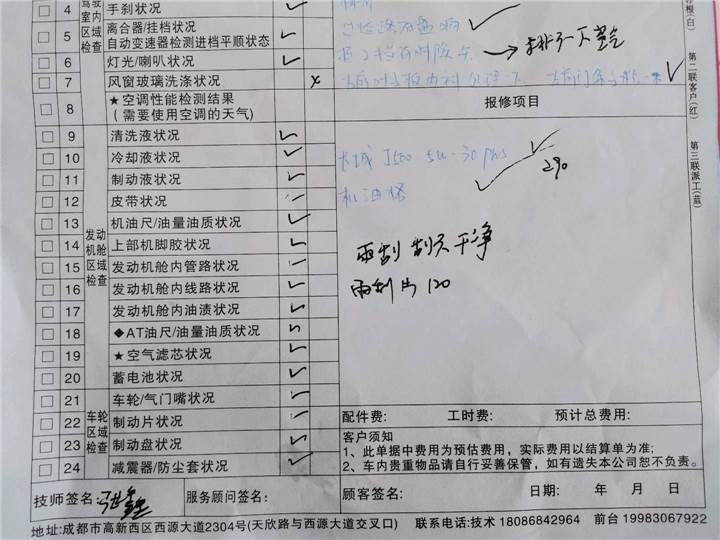 驾驶
室内
区域
检查
4 手刹状况
5 离合器/挂档状况
自动变速器检测进档平顺状态
6 灯光/喇叭状况
7 风窗玻璃洗涤状况 x
8 ★空调性能检测结果
(需要使用空调的天气)
报修项目
发动
机舱
区域
检查
9 清洗液状况
10 冷却液状况
长城 J500 5W-30 plus
290
11 制动液状况
机油格
12 皮带状况
13 机油尺/油量油质状况
14 上部机脚胶状况
雨刮 刮不干净
15 发动机舱内管路状况
16 发动机舱内线路状况
雨刮片 120
17 发动机舱内油渍状况
18 ◆AT油尺/油量油质状况
19 ★空气滤芯状况
20 蓄电池状况
车轮
区域
检查
21 车轮/气门嘴状况
22 制动片状况
23 制动盘状况
24 减震器/防尘套状况
配件费: 工时费: 预计总费用:
客户须知
1、此单据中费用为预估费用,实际费用以结算单为准;
2、车内贵重物品请自行妥善保管,如有遗失本公司恕不负责。
技师签名: 服务顾问签名: 顾客签名: 日期: 年 月 日
地址:成都市高新西区西源大道2304号(天欣路与西源大道交叉口) 联系电话:技术 18086842964 前台 19983067922
存根(白)
第二联客户(红)
第三联派工(蓝)